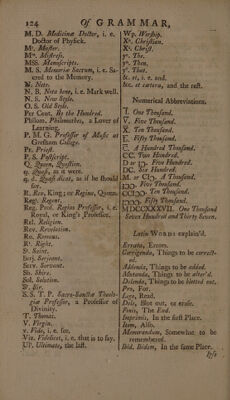 124 Of GRAMMAR,
M. D. Medicinæ Doctor, i. e.
Doctor of Physick.
Mr. Master.
Mrs. Mistress.
MSS. Manuscripts.
M. S. Memoriæ Sacrum, i. e. Sa-
cred to the Memory.
N. Note.
N. B. Nota bene, i. e. Mark well.
N. S. New Style.
O. S. Old Style.
Per Cent. By the Hundred.
Philom. Philomathes, a Lover of
Learning.
P. M. G. Professor of Musick at
Gresham College.
Pr. Priest.
P. S. Postscript.
Q. Queen, Question.
q. Quasi, as it were.
q. d. Quasi dicat, as if he should
say.
R. Rex, King; or Regina, Queen.
Regt. Regent.
Reg. Prof. Regius Professor, i. e.
Royal, or King's Professor.
Rel. Religion.
Rev. Revelation.
Ro. Romans.
Rt. Right.
St. Saint.
Serj. Serjeant.
Serv. Servant.
Sh. Shire.
Sol. Solution.
Sr. Sir.
S. S. T. P. Sacro-Sanctæ Theolo-
giæ Professor, a Professor of
Divinity.
T. Thomas.
V. Virgin.
v. Vide, i. e. see.
Viz. Videlicet, i. e. that is to say.
Ult. Ultimate, the last.
Wp. Worship.
Xn. Christian.
Xt. Christ.
ye. The.
yn. Then.
yt. That.
&. et, i. e. and.
&c. et cætera, and the rest.
Numerical Abbreviations.
I. One Thousand.
V. Five Thousand.
X. Ten Thousand.
L. Fifty Thousand.
C. A Hundred Thousand.
CC. Two Hundred.
D or IƆ. Five Hundred.
DC. Six Hundred.
M. or CIƆ. A Thousand.
IƆƆ. Five Thousand.
CCIƆƆ. Ten Thousand.
IƆƆƆ. Fifty Thousand.
MDCCXXXVII. One Thousand
Seven Hundred and Thirty Seven.
Latin Words explain'd.
Errata, Errors.
Corrigenda, Things to be correct-
ed.
Addenda, Things to be added.
Absonda, Things to be after'd.
Delenda, Things to be blotted out.
Pro, For.
Lege, Read.
Dele, Blot out, or erase.
Finis, The End.
Imprimis, In the first Place.
Item, Also.
Memorandum, Somewhat to be
remembered.
Ibid. Ibidem, In the same Place.
Ipso